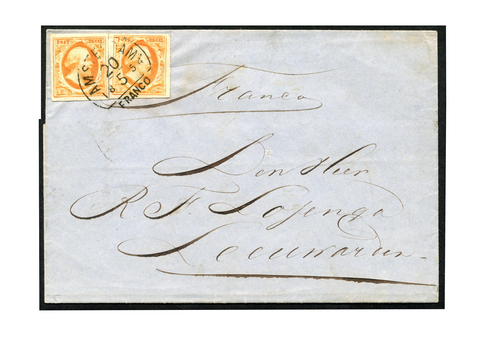 AMSTERDAM
20
5
FRANCO
Franco
Den Heer
R. F. Losenga
Leeuwarden